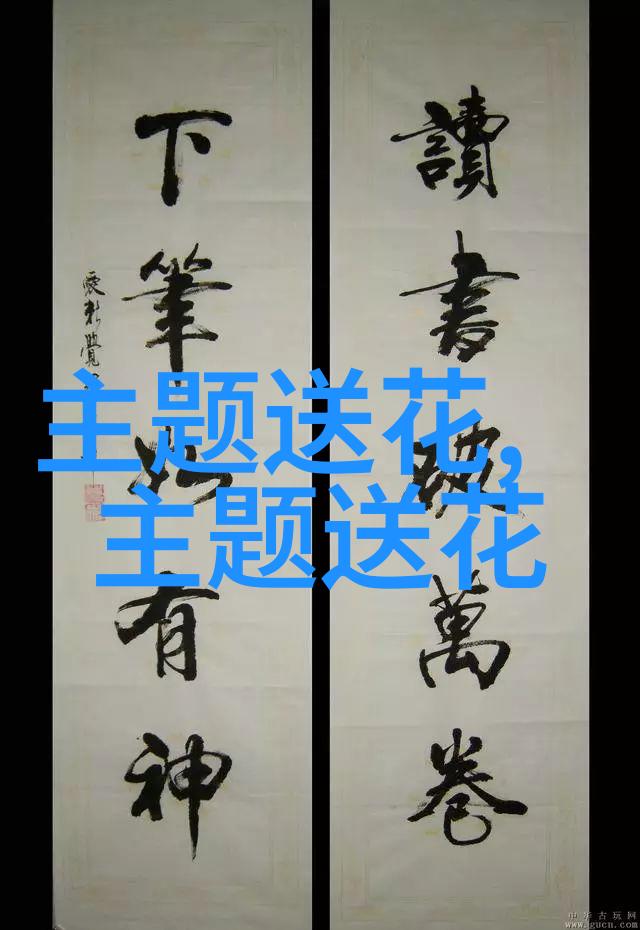 讀書破萬卷
下筆如有神
主题送花,
主题送花
中华古玩网
www.gucn.com